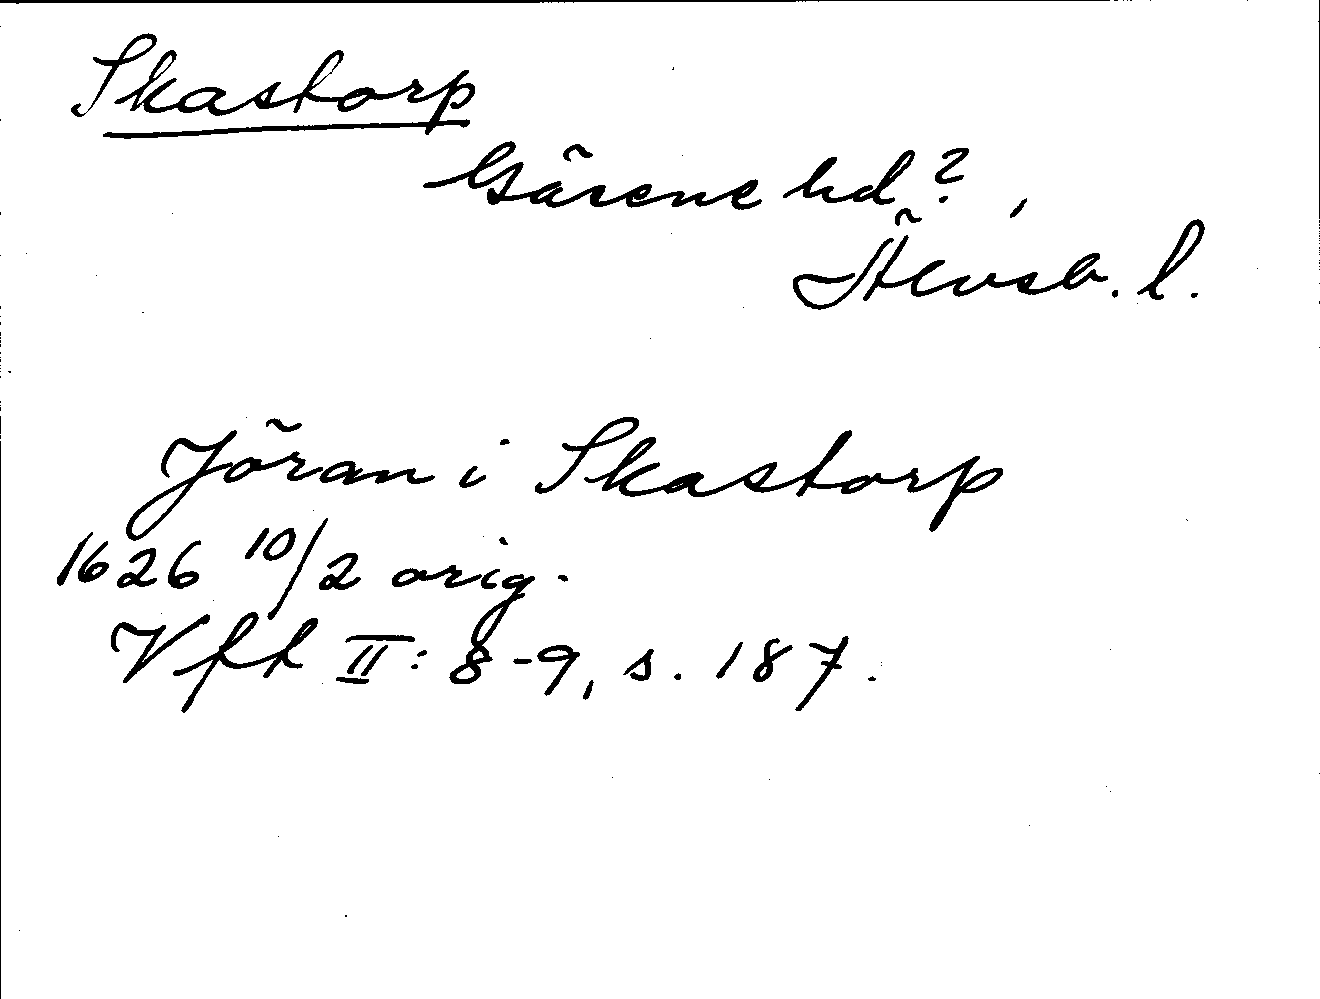 Skastorp
Gäsene hd?,
Älvsb. l.
Jöran i Skastorp
1626 10/2 orig.
Vfh II: 8-9, s. 187.